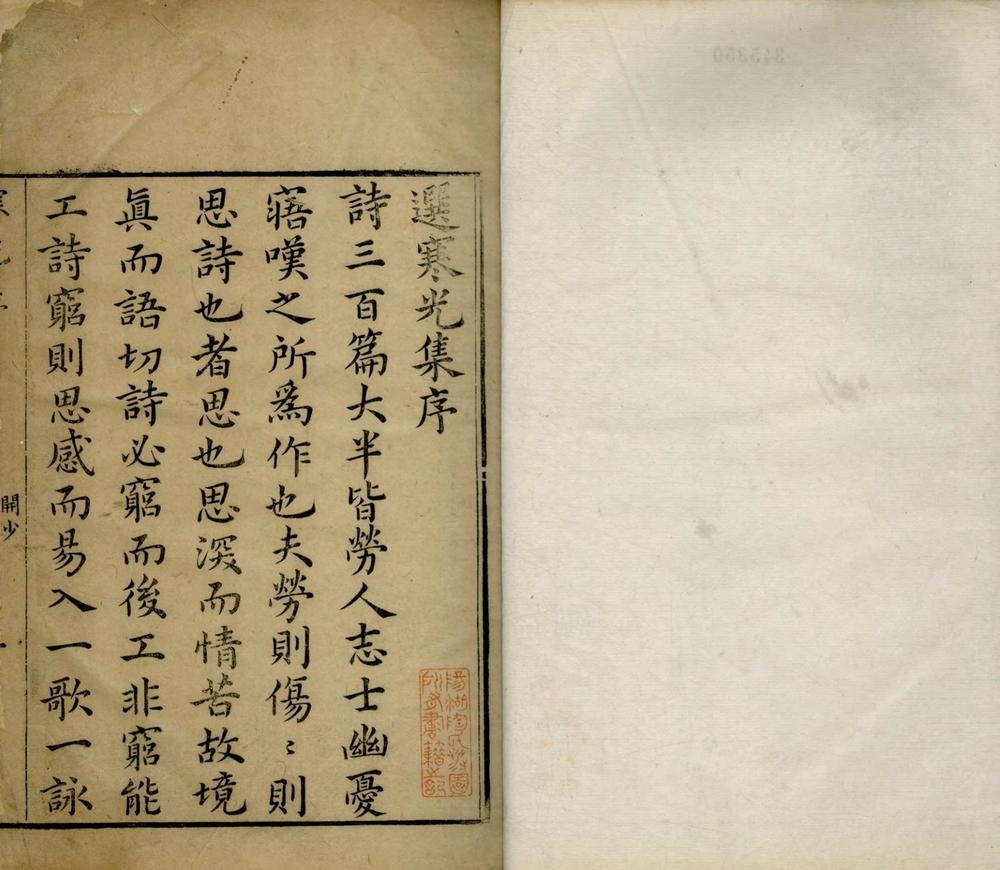 選寒光集序
詩三百篇大半皆勞人志士幽憂
寤嘆之所爲作也夫勞則傷〻則
思詩也者思也思深而情苦故境
眞而語切詩必窮而後工非窮能
工詩窮則思感而易入一歌一詠
開少
一
陽湖陶氏涉園
所有書籍之記
3153350